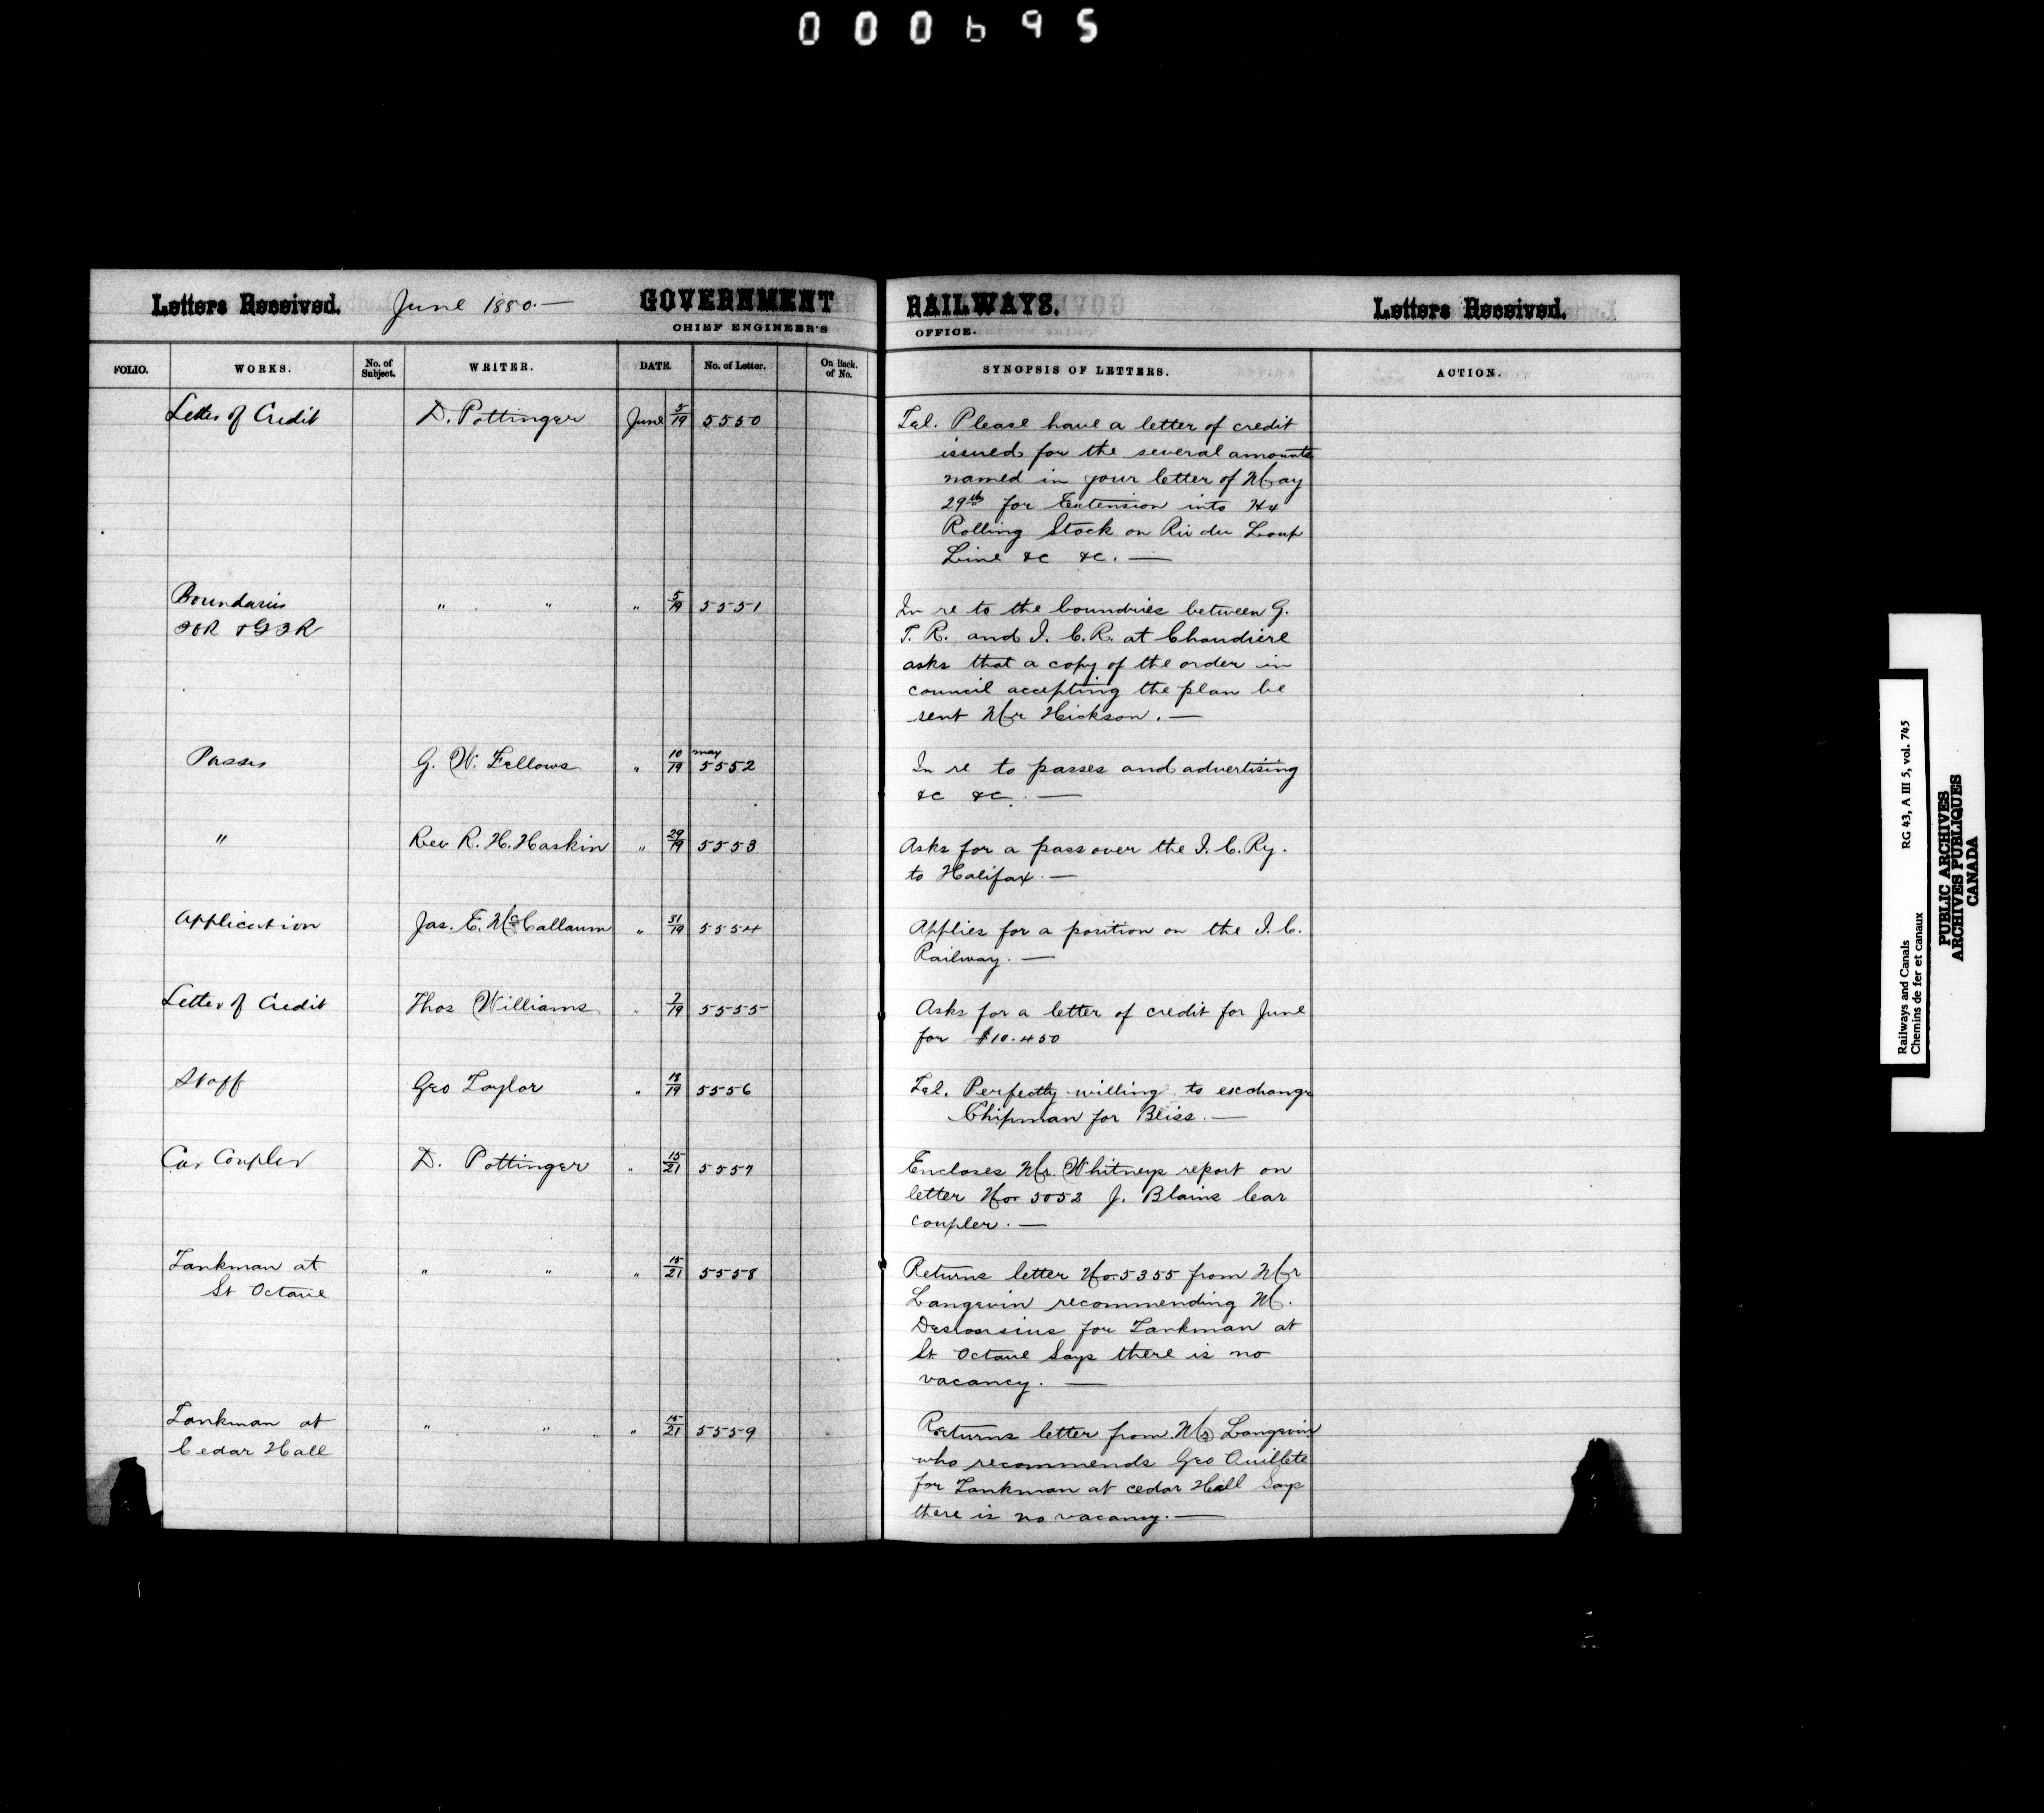 000695
Letters Received. June 1880.— GOVERNMENT RAILWAYS. Letters Received.
CHIEF ENGINEER'S OFFICE.
FOLIO. WORKS. No. of Subject. WRITER. DATE. No. of Letter. On Back. of No. SYNOPSIS OF LETTERS. ACTION.
Letter of Credit D. Pottinger June 5/19 5550 Tel. Please have a letter of credit
issued for the several amounts
named in your letter of May
29th for Extension into Hx
Rolling Stock on Riv du Loup
Line &c &c. —
Boundaries " " " 5/19 5551 In re to the boundries between G.
ICR & GTR T. R. and I. C. R. at Chaudiere
asks that a copy of the order in
council accepting the plan be
sent Mr Hickson. —
Passes G. W. Fellows " 10/19 may 5552 In re to passes and advertising
&c &c. —
" Rev R. H. Haskin " 29/19 5553 Asks for a pass over the I. C. Ry.
to Halifax. —
Application Jas. E. McCallaum " 31/19 5554 Applies for a position on the I. C.
Railway. —
Letter of Credit Thos Williams " /19 5555 Asks for a letter of credit for June
for $10.450
Staff Geo Taylor " 18/19 5556 Tel. Perfectly willing to exchange
Chipman for Bliss. —
Car Coupler D. Pottinger " 15/21 5557 Encloses Mr. Whitneys report on
letter No. 5052 J. Blains Car
coupler. —
Tankman at " " " 15/21 5558 Returns letter No. 5355 from Mr
St Octave Langevin recommending M.
for Tankman at
St. Octave Says there is no
vacancy. —
Tankman at " " " 15/21 5559 Returns letter from Mr Langevin
Cedar Hall who recommends Geo Ouillete
for Tankman at cedar Hall Says
there is no vacancy. —
Railways and Canals RG 43, A III 5, vol. 745
Chemins de fer et canaux
PUBLIC ARCHIVES
ARCHIVES PUBLIQUES
CANADA